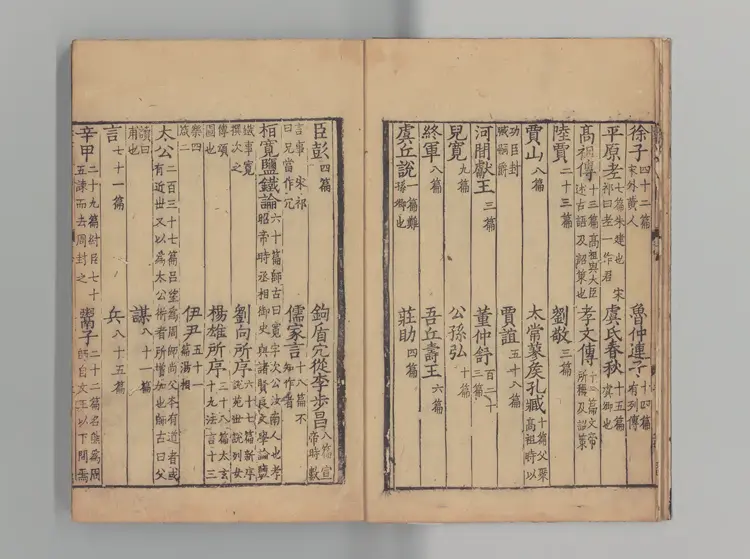 徐子四十二篇宋外黄人 魯仲連子十四篇有列傳
平原老七篇朱建也宋祁曰老一作君 虞氏春秋十五篇虞卿也
高祖傳十三篇高祖與大臣述古語及詔策也 孝文傳十一篇文帝所稱及詔策
陸賈二十三篇 劉敬三篇
賈山八篇 太常蓼侯孔臧十篇父聚高祖時以
功臣封臧嗣爵 賈誼五十八篇
河間獻王三篇 董仲舒百二十三篇
兒寬九篇 公孫弘十篇
終軍八篇 吾丘壽王六篇
虞丘說一篇難孫卿也 莊助四篇
臣彭四篇 鉤盾冗從李步昌八篇宣帝時數
言事宋祁曰兄當作冗 儒家言十八篇不知作者
桓寬鹽鐵論六十篇師古曰寬字次公汝南人也孝昭帝時丞相御史與諸賢良文學論鹽
鐵事寬撰次之 劉向所序六十七篇新序說苑世說列女
傳頌圖也 楊雄所序三十八篇太玄十九法言十三
樂四箴二 伊尹五十一篇湯相
太公二百三十七篇呂望爲周師尚父本有道者或有近世又以爲太公術者所增加也師古曰父
讀曰甫也 謀八十一篇
言七十一篇 兵八十五篇
辛甲二十九篇紂臣七十五諫而去周封之 鬻子二十二篇名熊爲周師自文王以下問焉